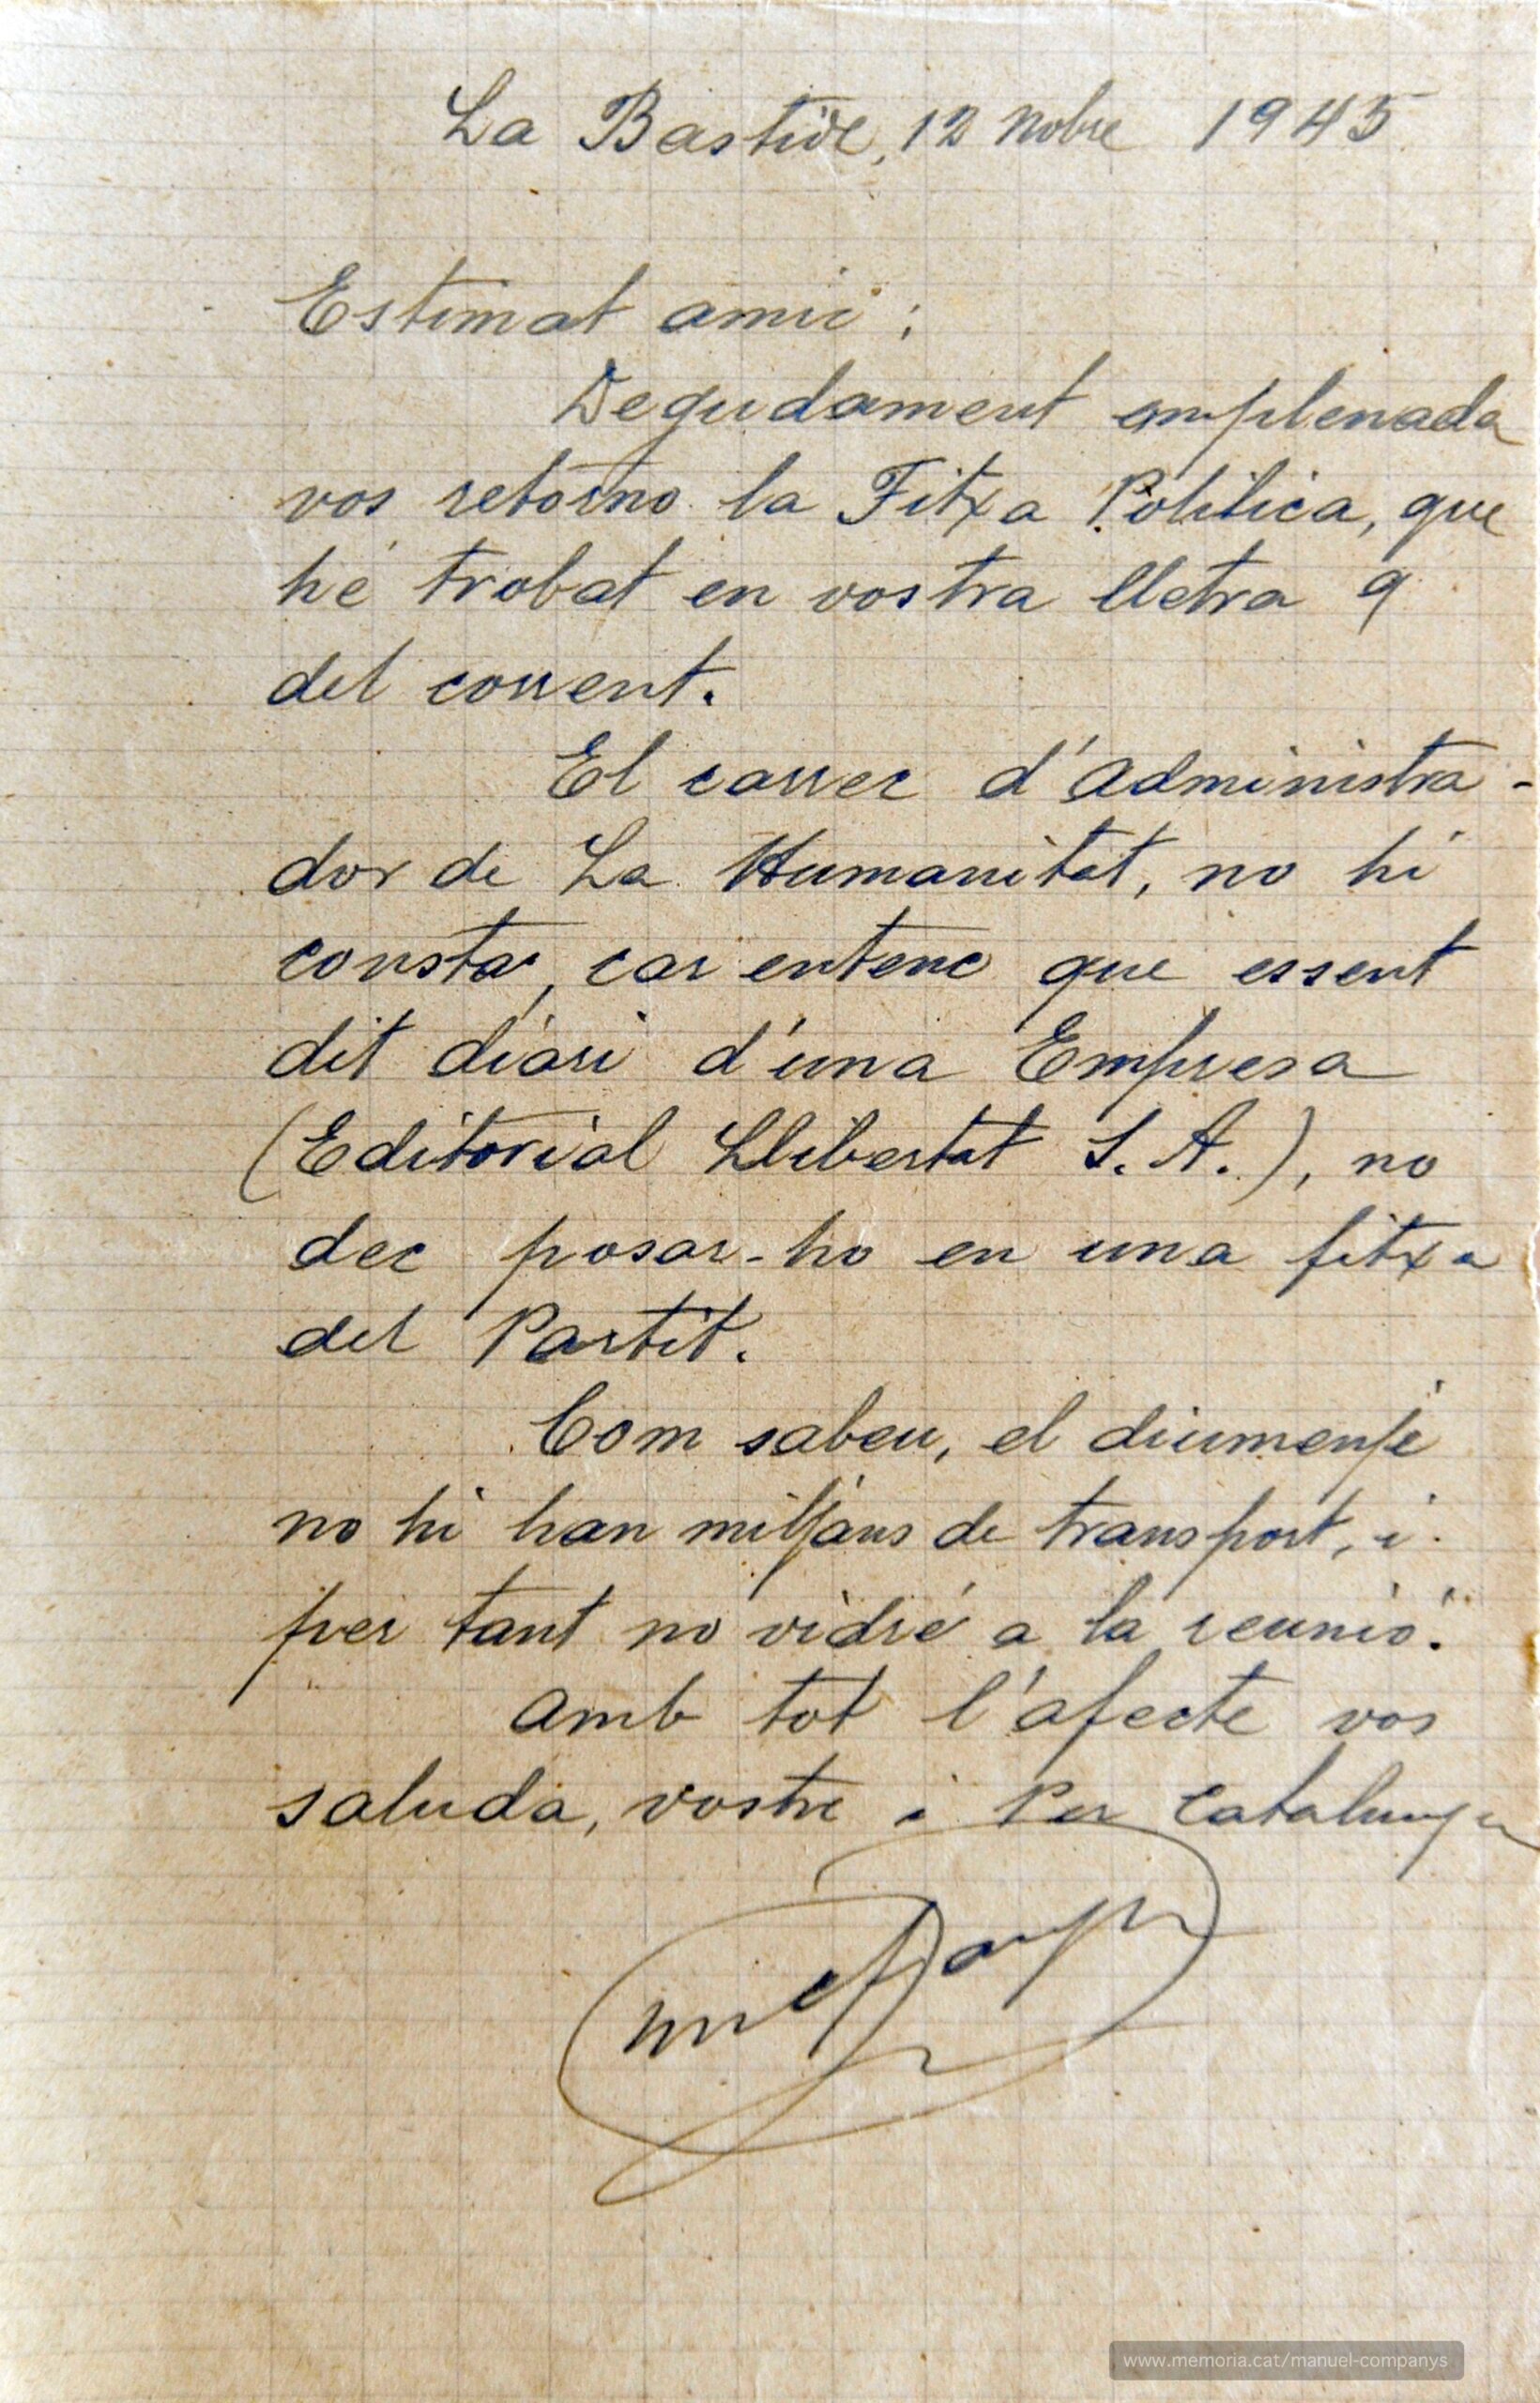 La Bastide, 12 Nobre 1945
Estimat amic:
Degudament emplenada
vos retorno la Fitxa Politica, que
hé trobat en vostra lletra 9
del corrent.
El carrec d'administra-
dor de La Humanitat, no hi
consta, car entenc que essent
dit diari d'una Empresa
(Editorial Llibertat S. A.), no
dec posar-ho en una fitxa
del Partit.
Com sabeu, el diumenje
no hi han mitjans de transport, i
per tant no vidré a la reunió.
Amb tot l'afecte vos
saluda, vostre i Per Catalunya
www.memoria.cat/manuel-companys